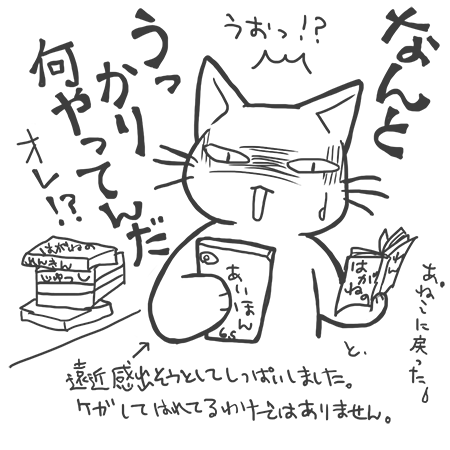 なんと
うっかり
何やってんだ
オレ!?
うおっ!?
はがねの
れんきん
じゅつし
あいほん
6s
はがねの
あ。ねこに戻った。
と、
遠近感出そうとしてしっぱいしました。
ケガしてはれてるわけではありません。